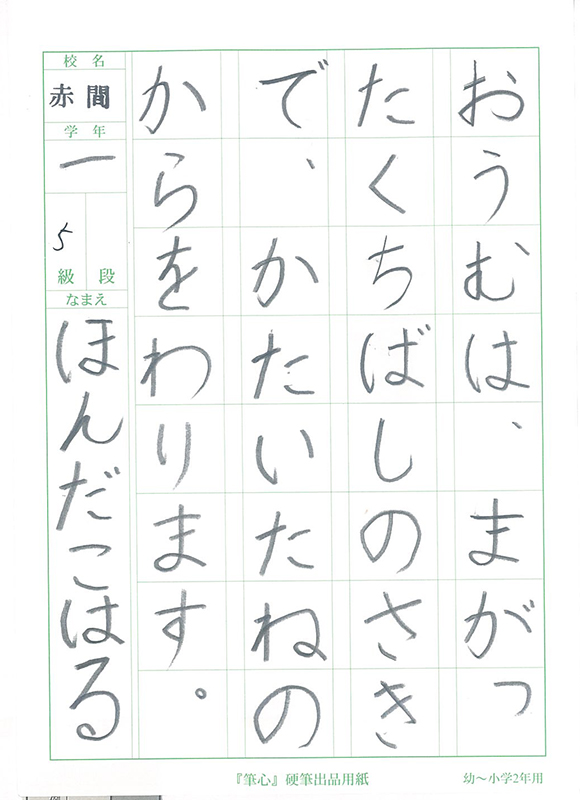 おうむは、まがっ
たくちばしのさき
で、かたいたねの
からをわります。
校名
赤間
学年
一
5
級 段
なまえ
ほんだこはる
『筆心』硬筆出品用紙
幼～小学2年用